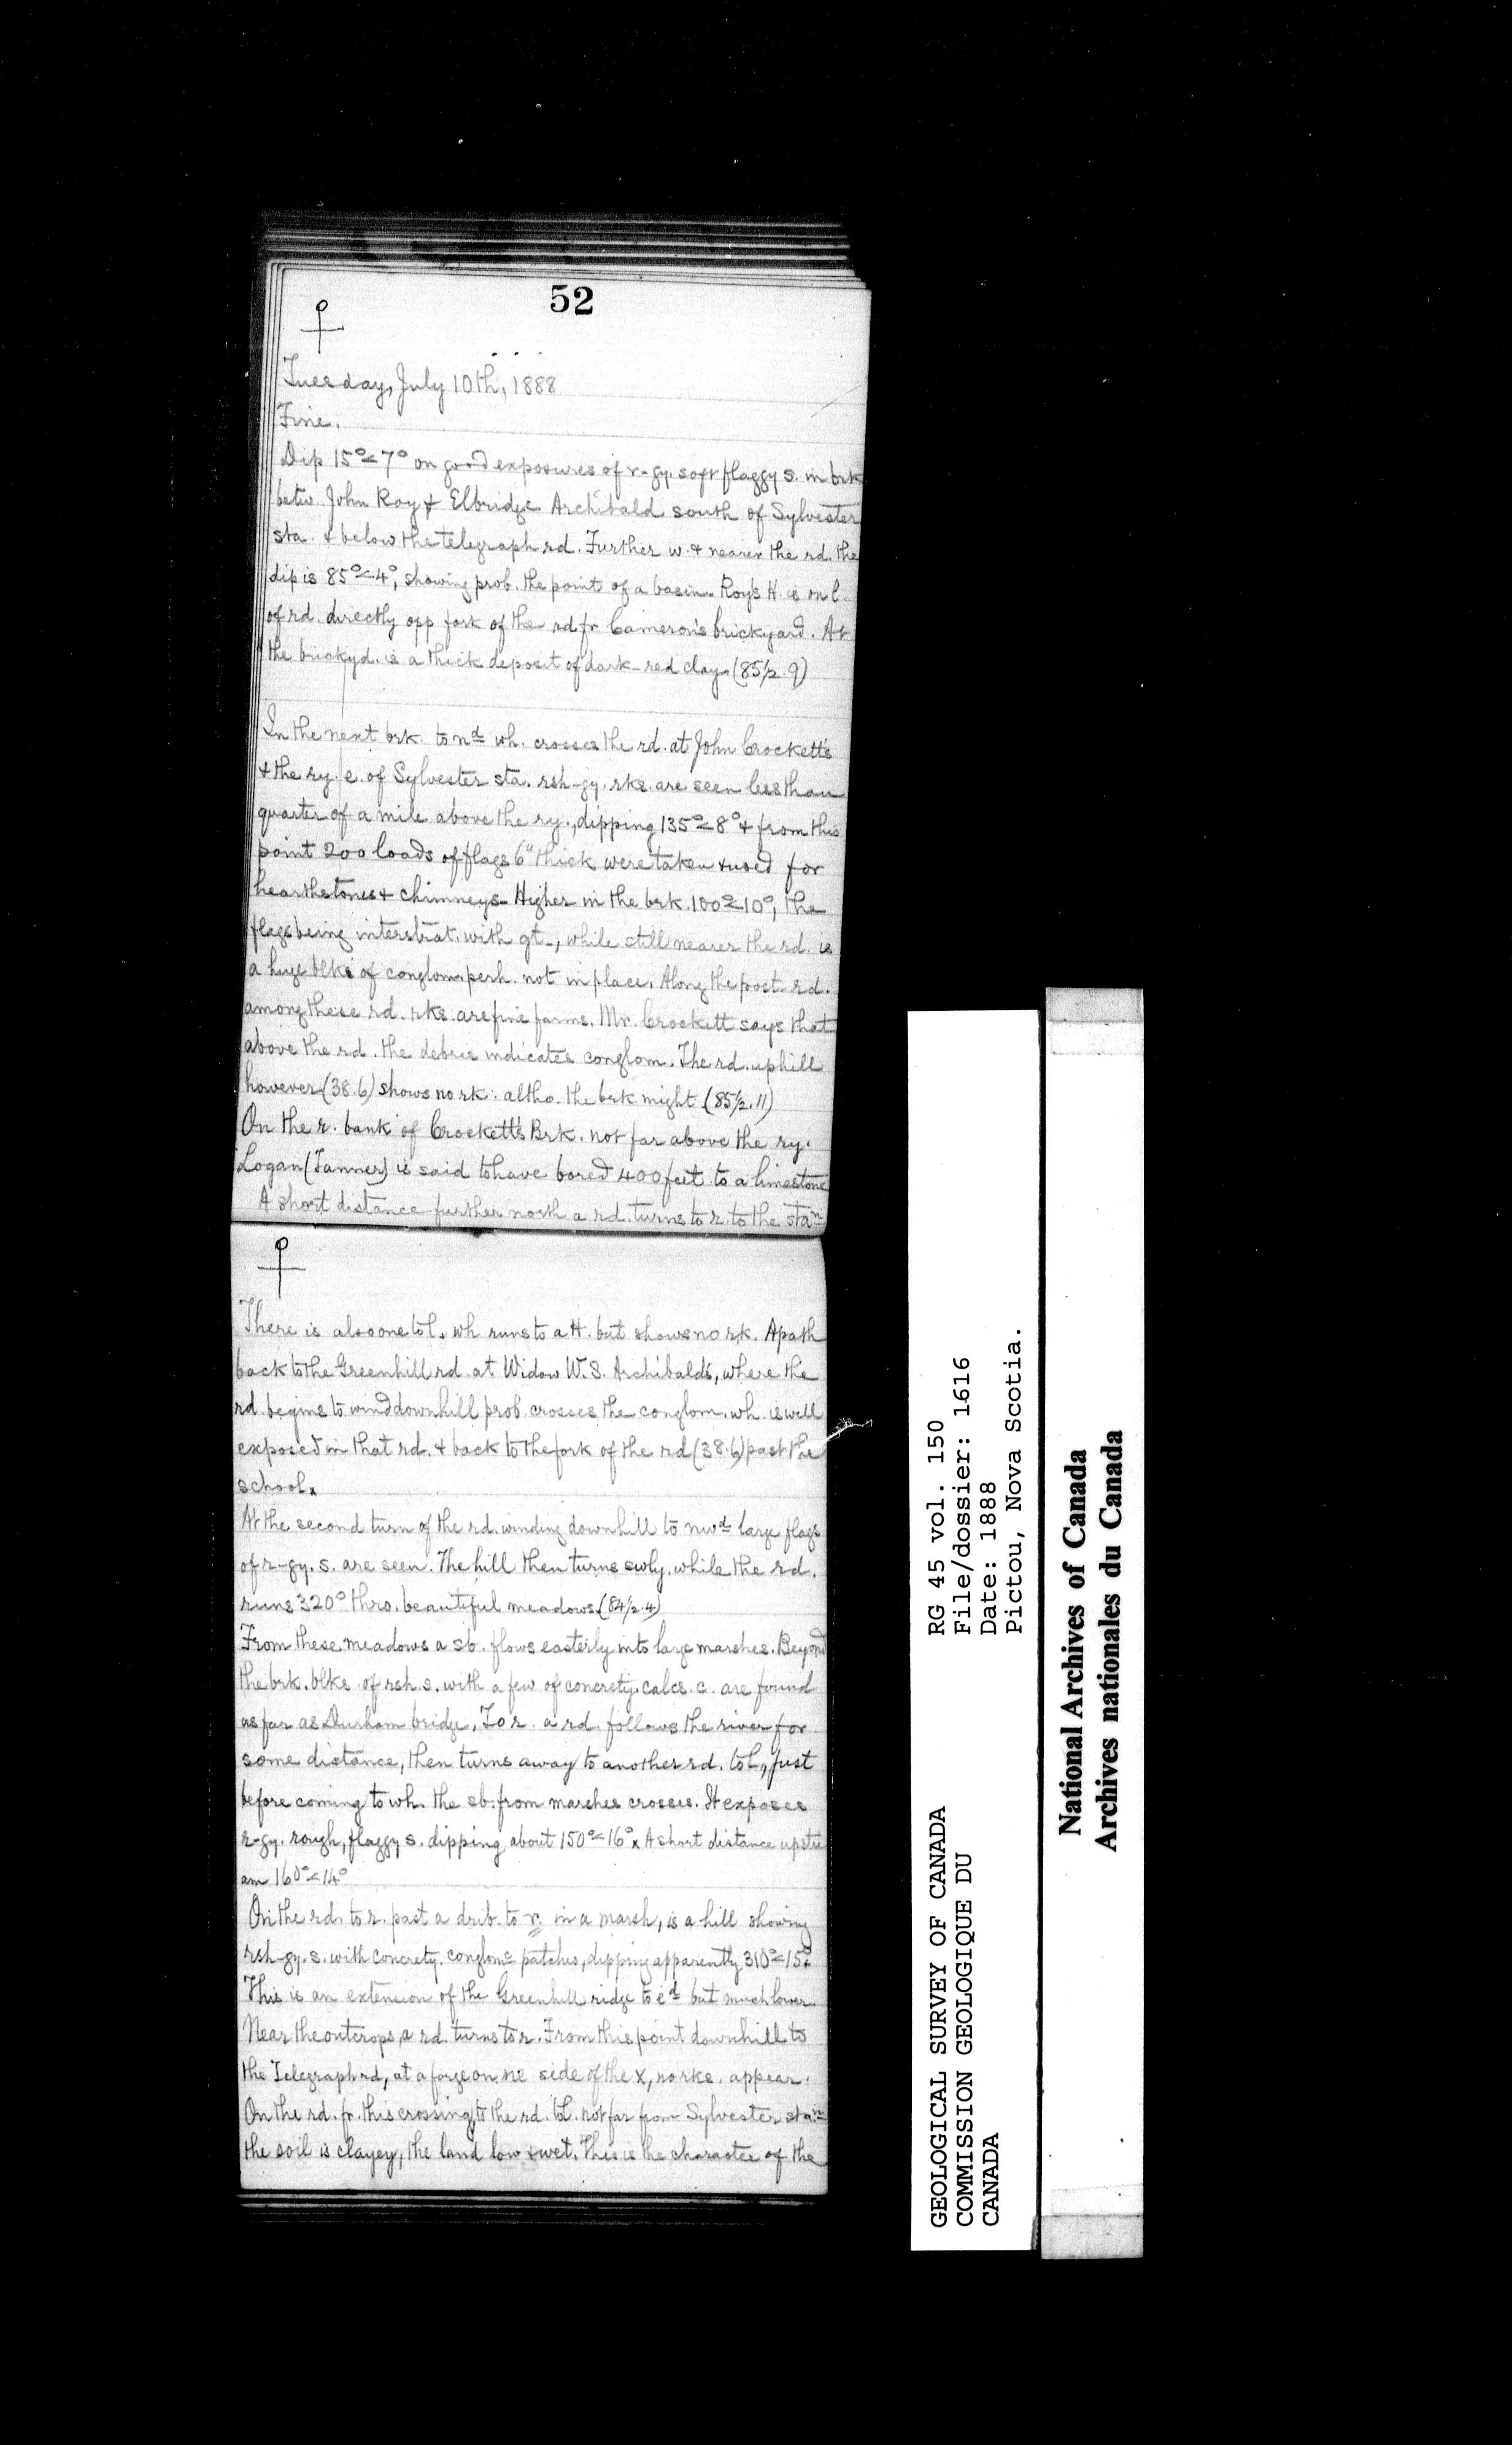 52
Tuesday, July 10th, 1888
Fine.
Dip 15°<7° on good exposures of r-gy. soft flaggy s. in brk
betw. John Roy & Elbridge Archibald south of Sylvester
sta. & below the telegraph rd. Further w. & nearer the rd. the
dip is 85°<4°, showing prob. the point of a basin. Roy's H. is on l.
of rd. directly opp fork of the rd. fr. Cameron's brickyard. At
the brickyd. is a thick deposit of dark-red clay. (85½.9)
In the next brk. to nd wh. crosses the rd. at John Crockett's
& the ry. e. of Sylvester sta. rsh-gy. rks. are seen less than
quarter of a mile above the ry., dipping 135°<8° & from this
point 200 loads of flags 6" thick were taken & used for
hearthstones & chimneys. Higher in the brk. 100°<10°, the
flags being interstrat. with gt., while still nearer the rd. is
a huge blks of conglom. perh. not in place. Along the post-rd.
among these rd. rks. are fine farms. Mr. Crockett says that
above the rd. the debris indicates conglom. The rd. uphill
however (38.6) shows no rk. altho. the brk. might (85½.11)
On the r. bank of Crockett's Brk. not far above the ry.
Logan (Tanner) is said to have bored 400 feet to a limestone
A short distance further north a rd. turns to r. to the stan
There is also one to l. wh runs to a H. but shows no rk. A path
back to the Greenhill rd. at Widow W. S. Archibald's, where the
rd begins to wind downhill prob. crosses the conglom. wh. is well
exposed in that rd. & back to the fork of the rd (38.6) past the
school.
At the second turn of the rd. winding downhill to nwd large flags
of r-gy. s. are seen. The hill then turns swly. while the rd.
runs 320° thro. beautiful meadows. (84½.4)
From these meadows a sb. flows easterly into large marshes. Beyond
the brk. blks. of rsh. s. with a few of concrety. calcs. c. are found
as far as Durham bridge. To r. a rd. follows the river for
some distance, then turns away to another rd. to l., just
before coming to wh. the sb. from marshes crosses. It exposes
r-gy. rough, flaggy s. dipping about 150°<16°. A short distance upstre
am 160°<14°
On the rd. to r. past a drib. to r. in a marsh, is a hill showing
rsh-gy. s. with concrety. conglomc patches, dipping apparently 310°<15°.
This is an extension of the Greenhill ridge to ed but much lower.
Near the outcrops, a rd. turns to r. From this point downhill to
the Telegraph rd, at a forge on ne side of the X, no rks. appear.
On the rd. fr. this crossing to the rd. to l. not far from Sylvester stan
the soil is clayey, the land low & wet. This is the character of the
GEOLOGICAL SURVEY OF CANADA
COMMISSION GEOLOGIQUE DU
CANADA
RG 45 vol. 150
File/dossier: 1616
Date: 1888
Pictou, Nova Scotia.
National Archives of Canada
Archives nationales du Canada